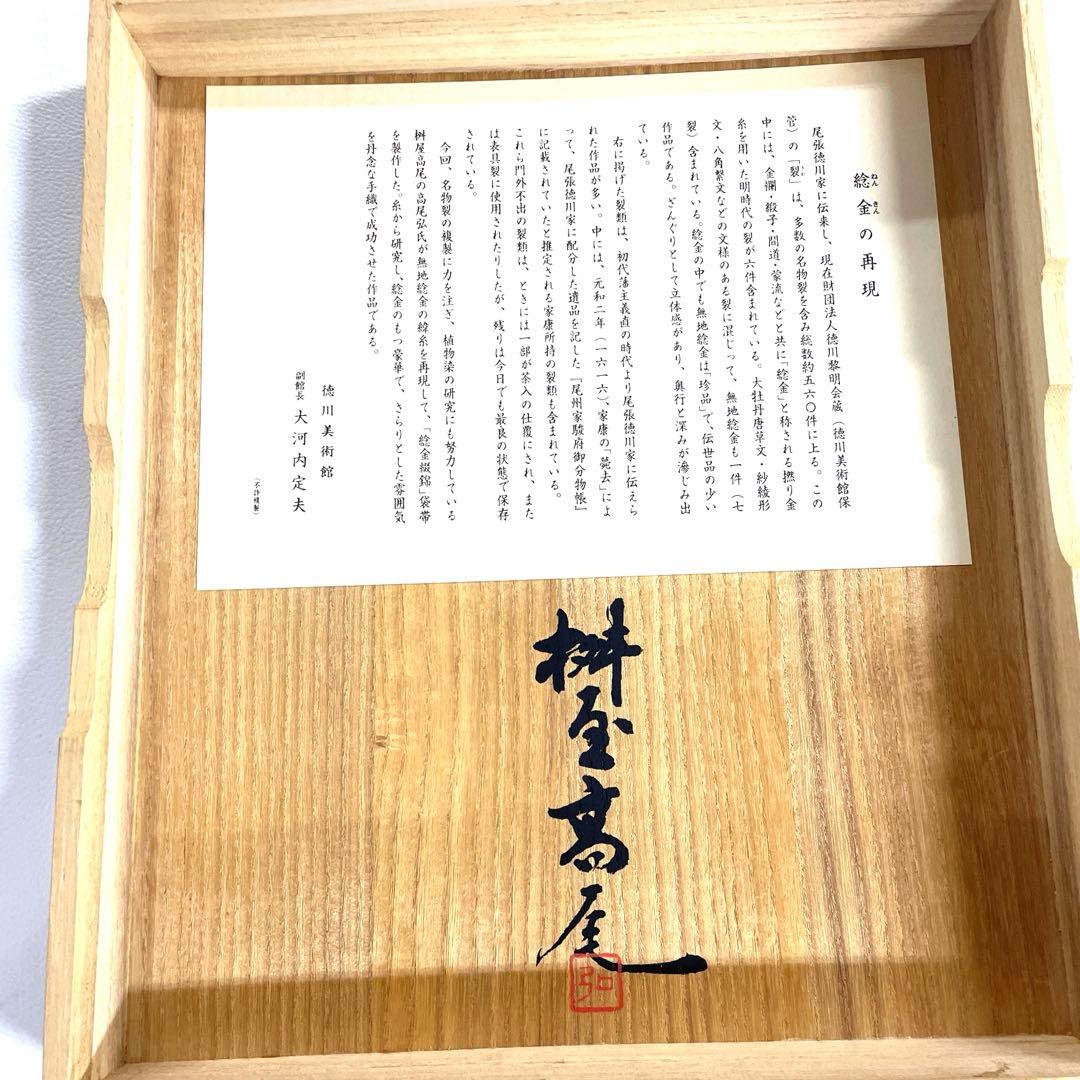 捻金の再現
ねん きん
尾張徳川家に伝来し、現在財団法人徳川黎明会蔵（徳川美術館保
管）の「裂」は、多数の名物裂を含み総数約五六〇件に上る。この
きれ
中には、金襴・緞子・間道・蒙流などと共に「捻金」と称される撚り金
糸を用いた明時代の裂が六件含まれている。大牡丹唐草文・紗綾形
文・八角繋文などの文様のある裂に混じって、無地捻金も一件（七
裂）含まれている。捻金の中でも無地捻金は「珍品」で、伝世品の少い
作品である。ざんぐりとして立体感があり、奥行と深みが滲じみ出
ている。
右に掲げた裂類は、初代藩主義直の時代より尾張徳川家に伝えら
れた作品が多い。中には、元和二年（一六一六）、家康の「薨去」によ
って、尾張徳川家に配分した遺品を記した『尾州家駿府御分物帳』
に記載されていたと推定される家康所持の裂類も含まれている。
これら門外不出の裂類は、ときには一部が茶入の仕覆にされ、また
は表具裂に使用されたりしたが、残りは今日でも最良の状態で保存
されている。
今回、名物裂の複製に力を注ぎ、植物染の研究にも努力している
桝屋高尾の高尾弘氏が無地捻金の緯糸を再現して、「捻金綴錦」袋帯
を製作した。糸から研究し、捻金のもつ豪華で、さらりとした雰囲気
を丹念な手織で成功させた作品である。
徳川美術館
副館長 大河内定夫
（不許複製）
桝屋高尾
弘